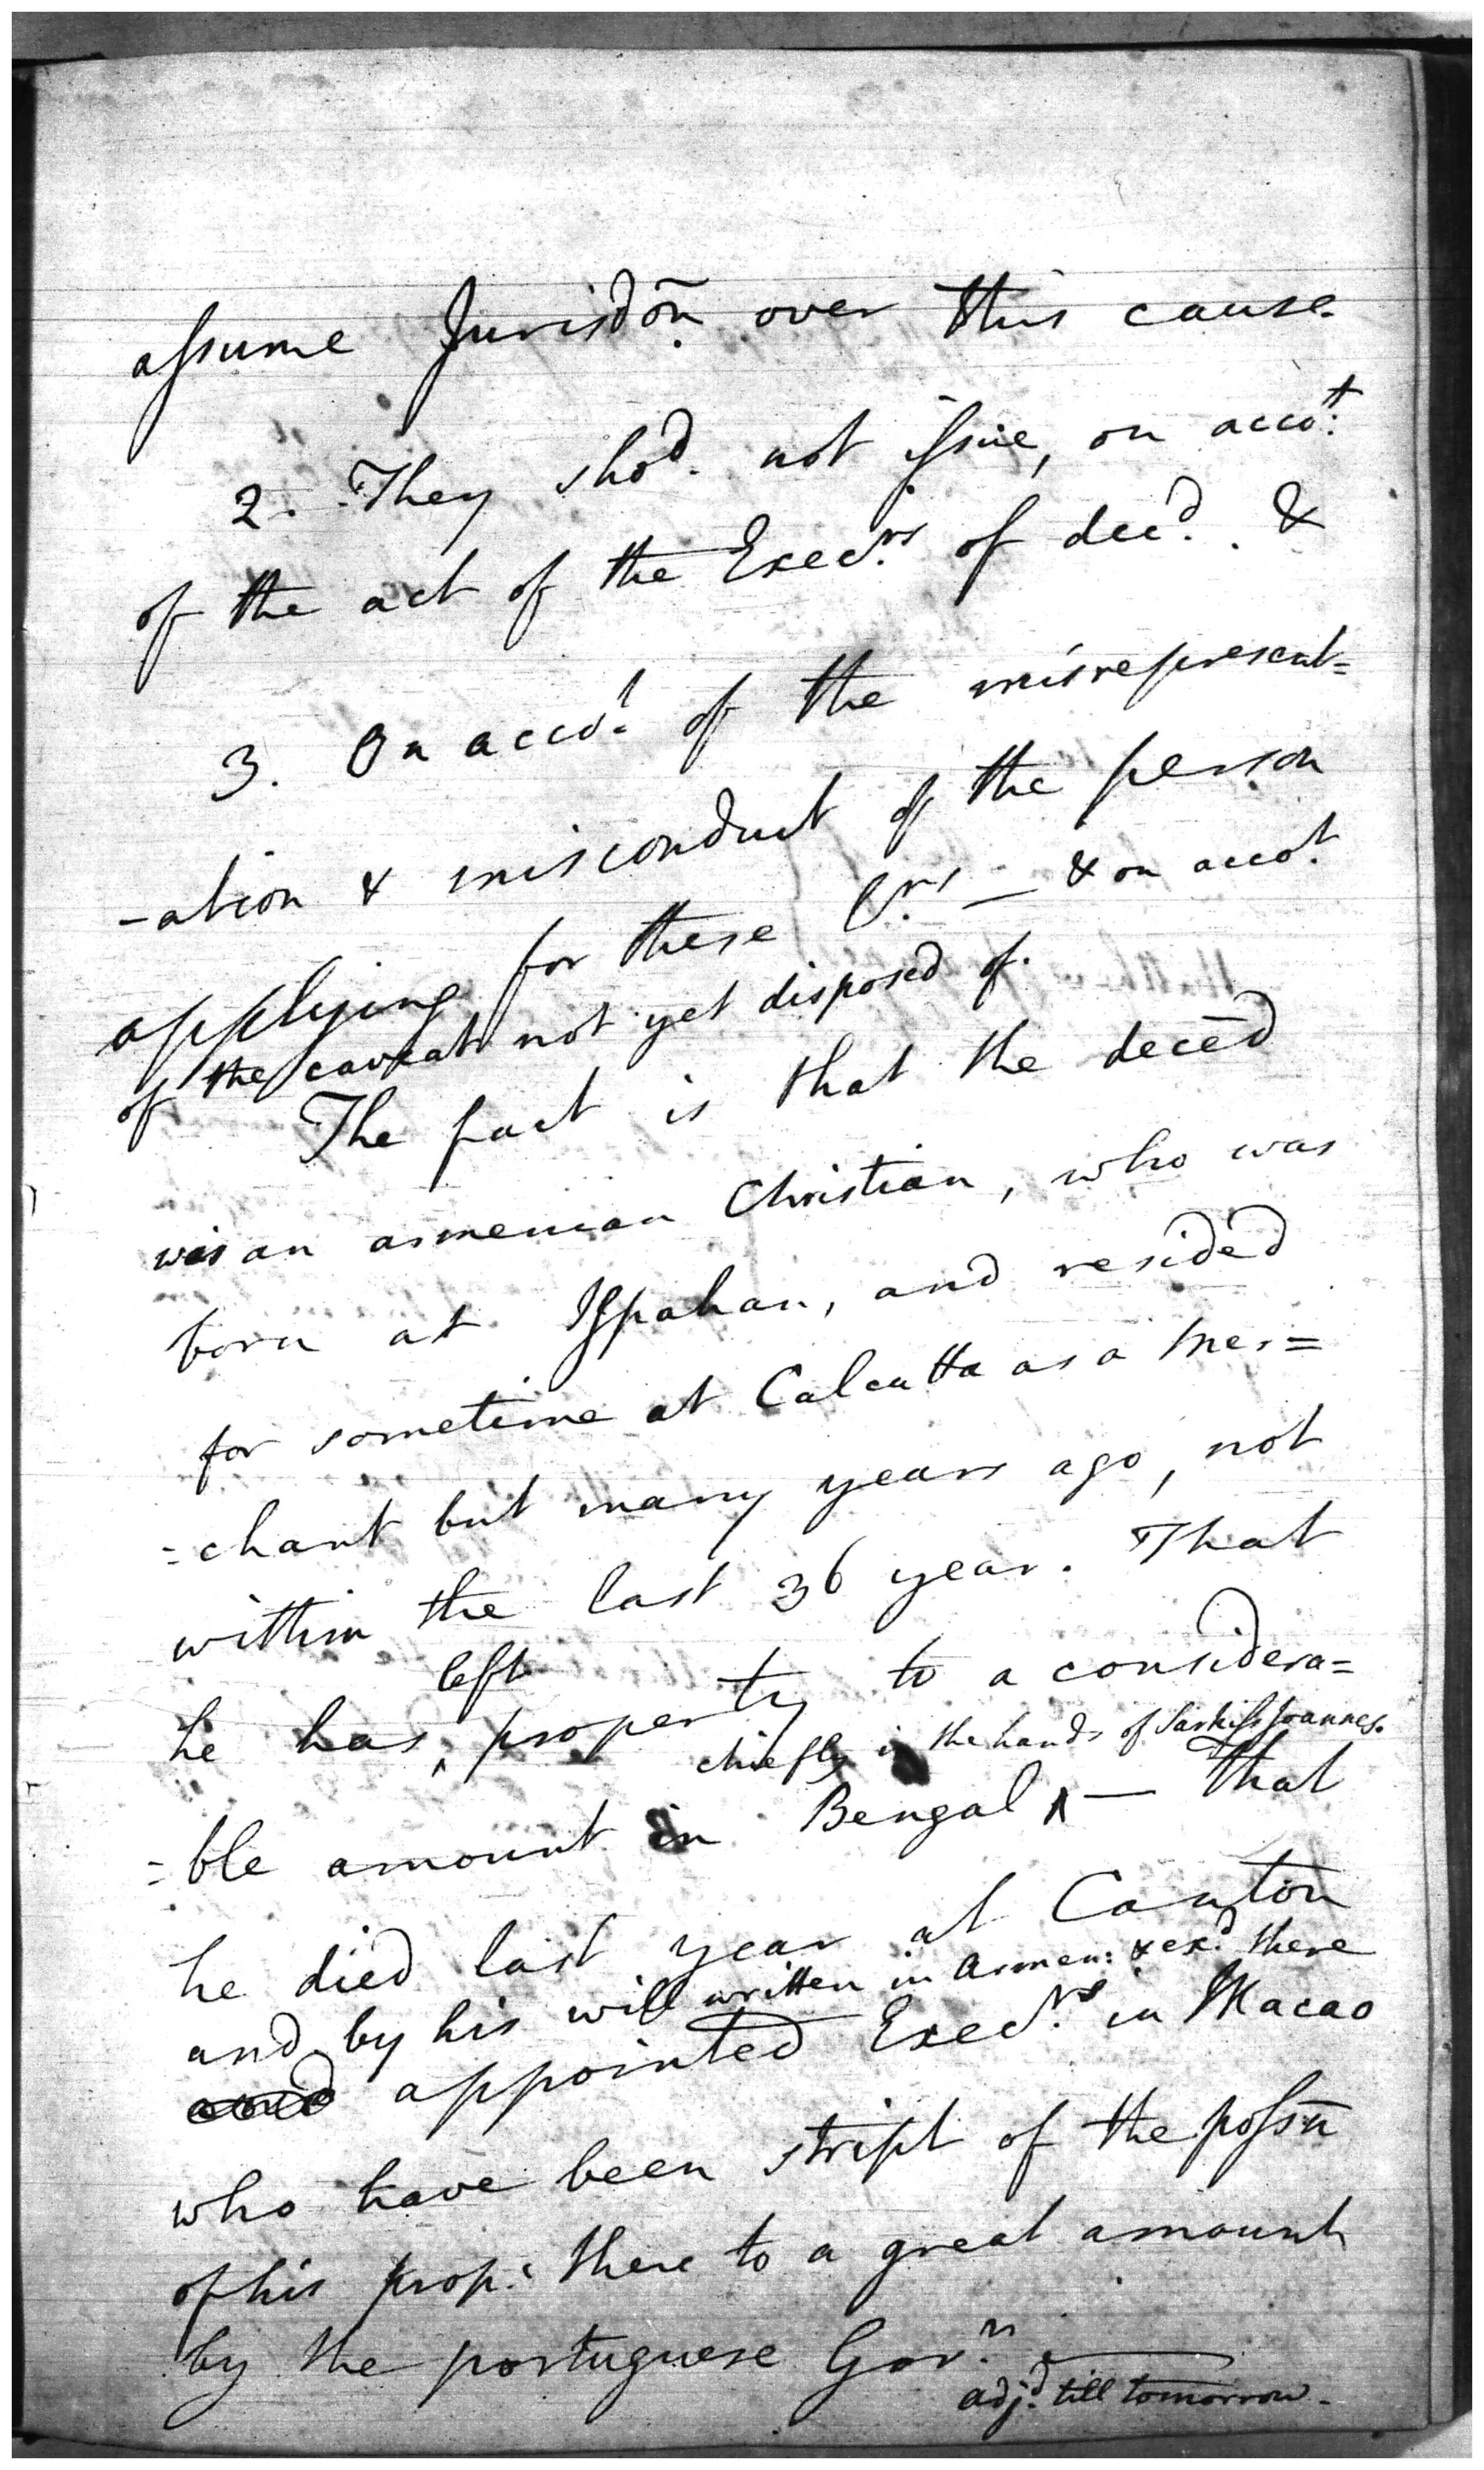 assume Jurisdōn over this cause.
2. They shod. not issue, on accot.
of the act of the Execrs. of decd. &
3. On accot. of the misrepresent=
-ation & misconduct of the person
applying for these — & on accot.
of the caveat not yet disposed of.
The fact is that the decēd
was an armenian Christian, who was
born at Ispahan, and resided
for sometime at Calcutta as a Mer=
=chant but many years ago, not
within the last 36 year. That
left
he has ‸ property to a considera=
chiefly in the hands of Sarkiss Joannes.
=ble amount in Bengal ‸ — That
he died last year at Canton
and by his will written in Armen: & exd. there
and appointed Execrs. in Macao
who have been stript of the possn̄
of his prop: there to a great amount
by the portuguese Govrn. —
adjd. till tomorrow.